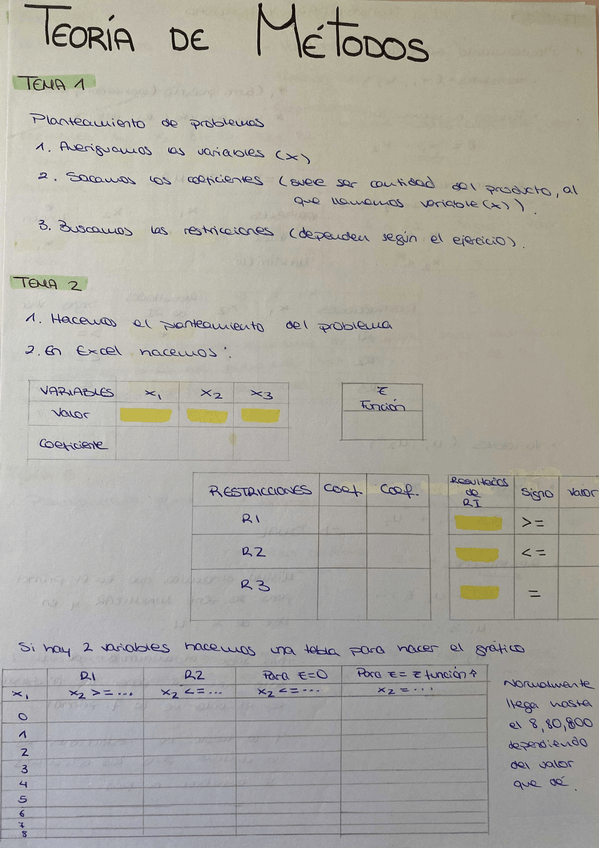 TEORÍA DE MÉTODOS
TEMA 1
Planteamiento de problemas
1. Averiguamos las variables (x)
2. Sacamos los coeficientes (suele ser cantidad del producto, al
que llamamos variable (x)).
3. Buscamos las restricciones (dependen según el ejercicio).
TEMA 2
1. Hacemos el planteamiento del problema
2. En Excel hacemos:
VARIABLES X1 X2 X3
Valor
Coeficiente
Z
Función
RESTRICCIONES Coef. Coef.
R1
R2
R3
Resultados de RI Signo Valor
>=
<=
=
Si hay 2 variables hacemos una tabla para hacer el gráfico
R1 R2 Para Z=0 Para Z= Z función
X1 X2 >= ... X2 <= ... X2 <= ... X2 = ...
0
1
2
3
4
5
6
7
8
Normalmente
llega hasta
el 8, 80, 800
dependiendo
del valor
que dé.